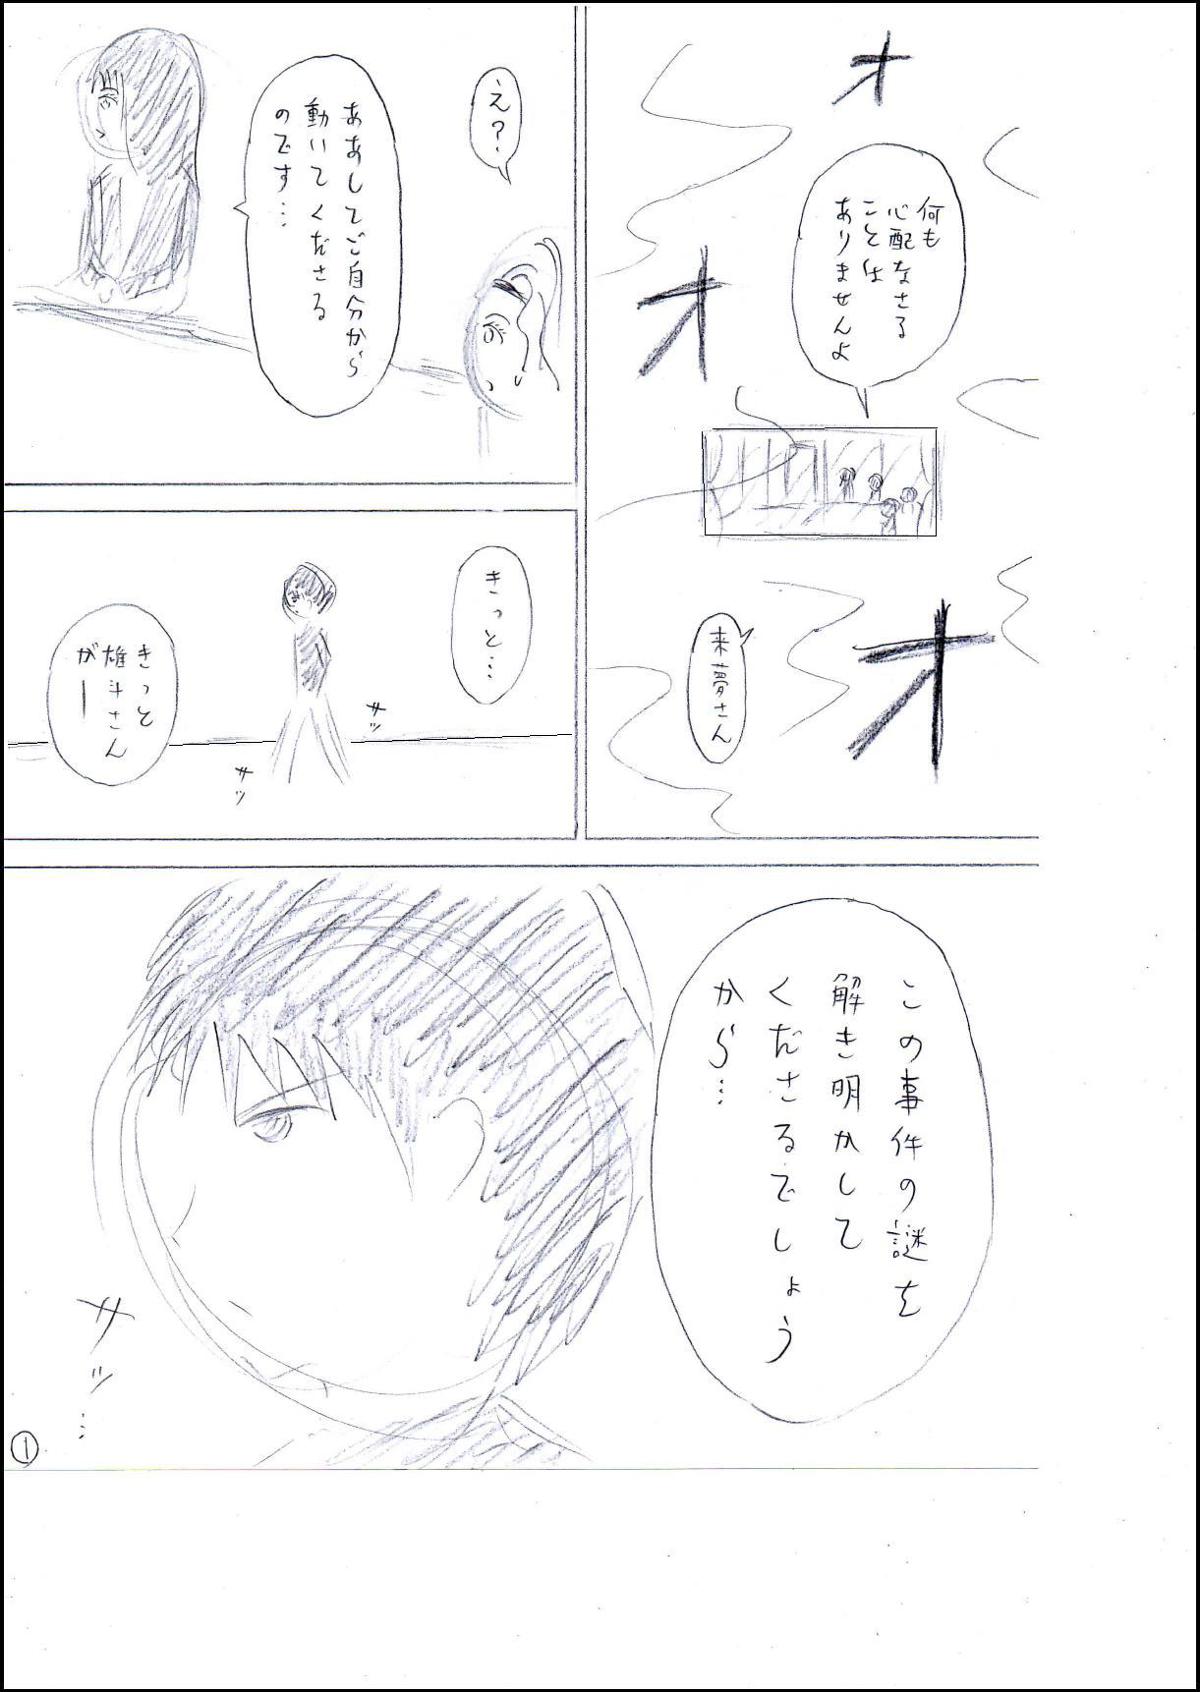 オ
何も
心配なさる
ことは
ありませんよ
オ
オ
来夢さん
え?
ああしてご自分から
動いてくださる
のです…
きっと…
サッ
サッ
きっと
雄斗さん
がー
この事件の謎を
解き明かして
くださるでしょう
から…
サッ…
①